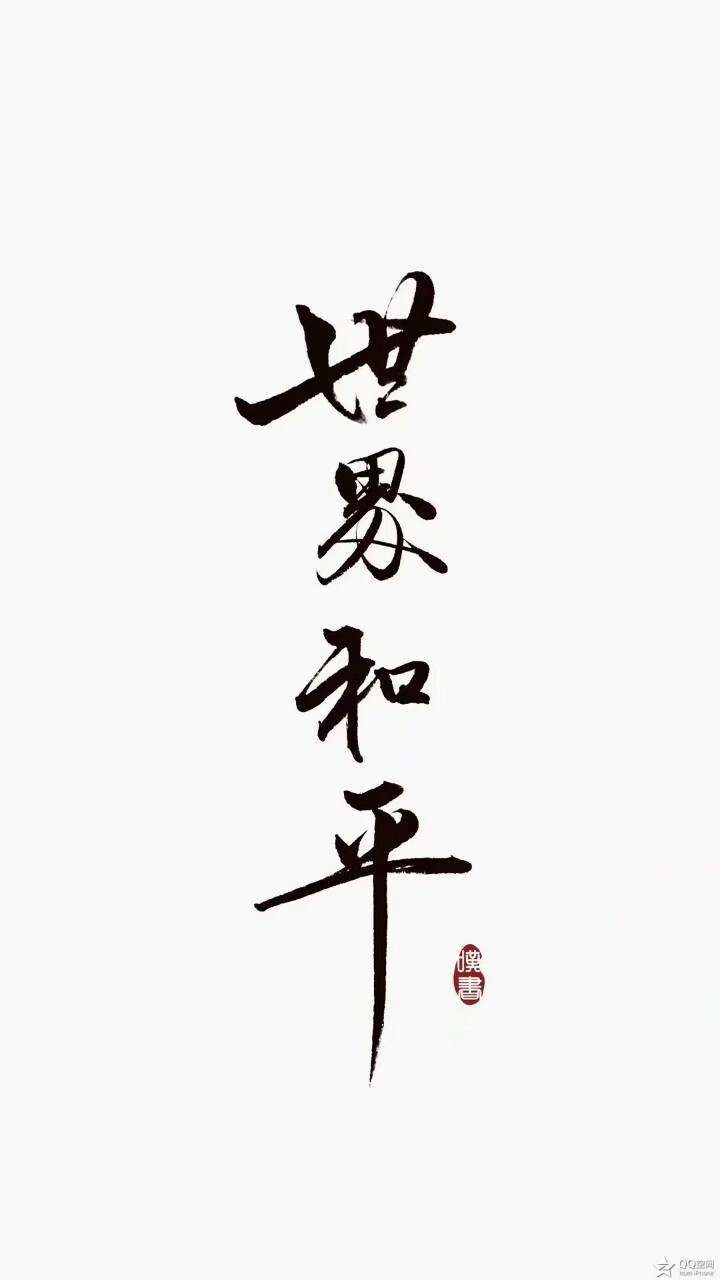 世界和平
嘆書
QQ空间
from iPhone